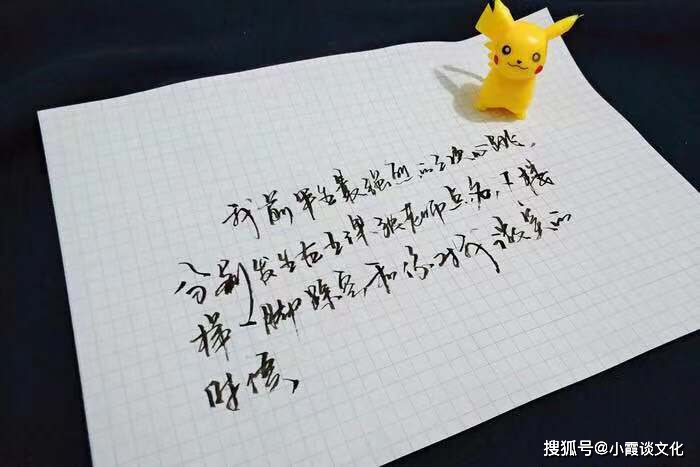 我前半生最强烈的三次心跳,
分别发生在上课被老师点名,下楼
梯一脚踩空和你对我微笑的
时候、
搜狐号@小霞谈文化